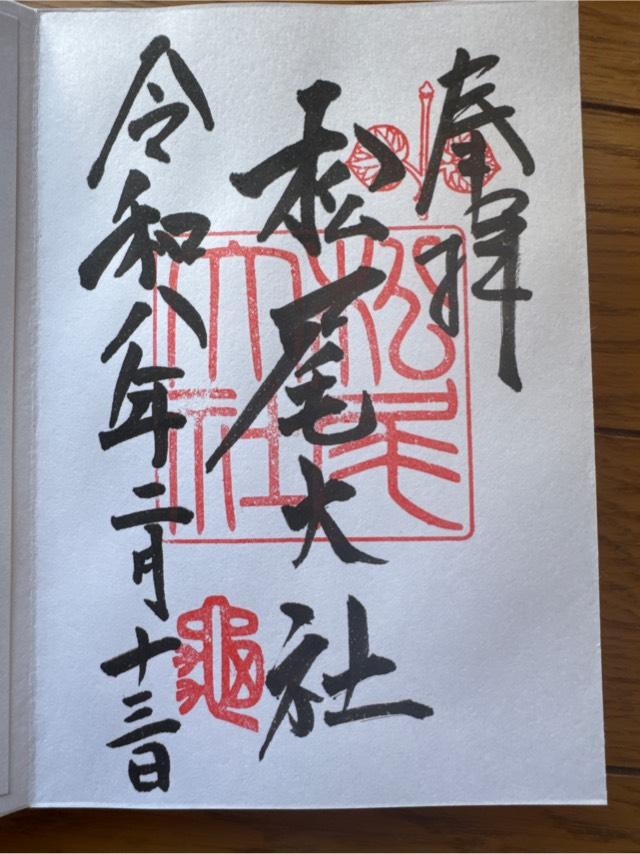 奉拝
松尾大社
令和八年二月十三日
松尾大社
亀